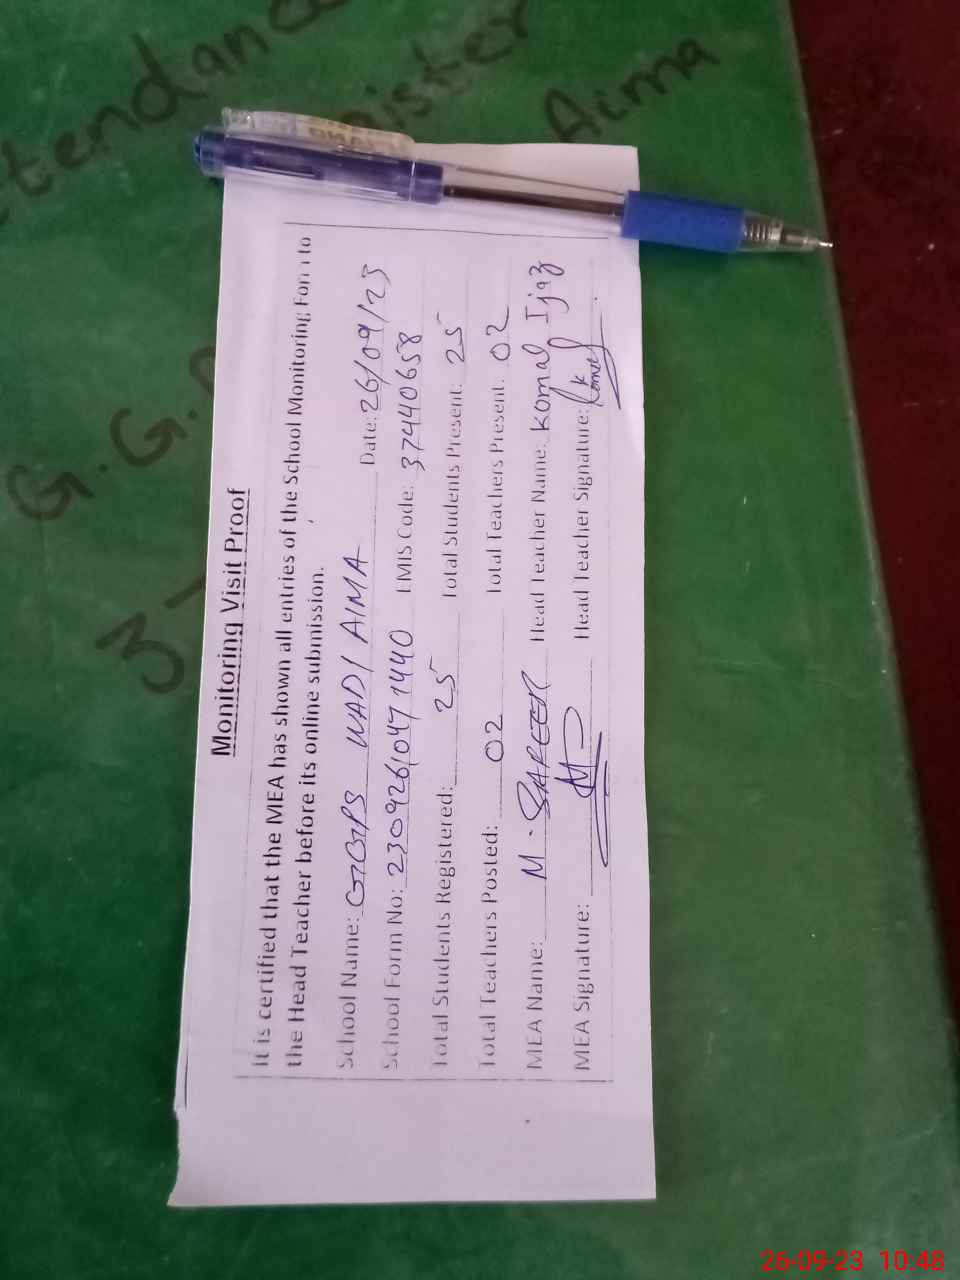 Monitoring Visit Proof
It is certified that the MEA has shown all entries of the School Monitoring Form to
the Head Teacher before its online submission.
School Name: GGPS WADI AIMA Date: 26/09/23
School Form No: 23092610471440 EMIS Code: 37440658
Total Students Registered: 25 Total Students Present: 25
Total Teachers Posted: 02 Total Teachers Present: 02
MEA Name: M. Head Teacher Name: Komal Ijaz
MEA Signature: Head Teacher Signature: Komal
ttendance
Register
G.G.
Aima
26-09-23 10:48